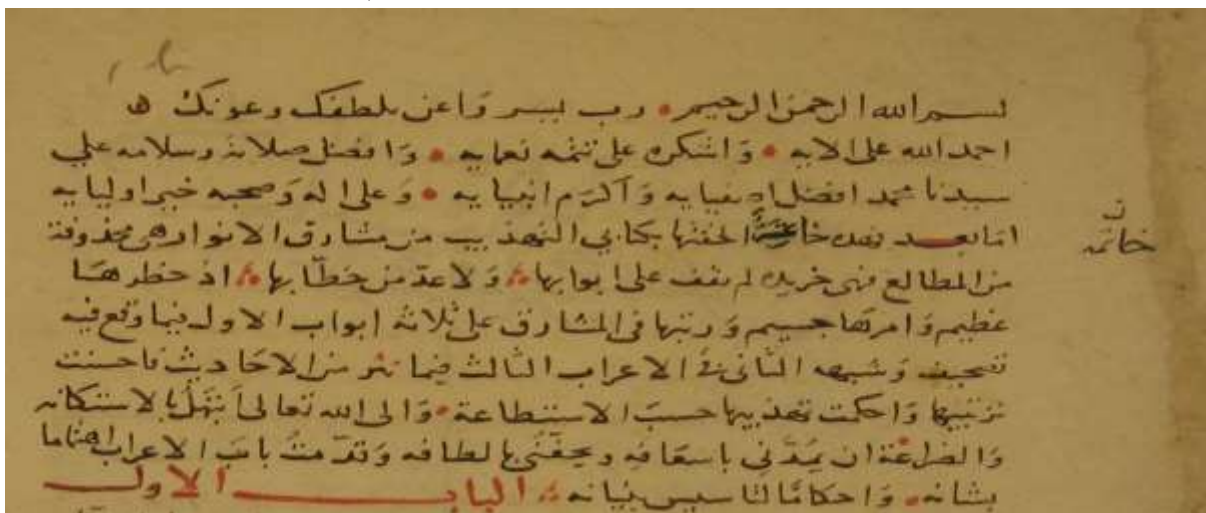 بسم الله الرحمن الرحيم • رب يسر واعن بلطفك وعونك ه
احمد الله على الايه • وَاشكره على تتمه نعمايه • وَافضل صلاته وسلامه علي
سيدنا محمد افضل اصفيايه وَاكرم انبيايه • وَعلى اله وَصحبه خير اوليايه
امّا بعد فهذه خاتمة الحقتها بكتابي التهذيب من مشارق الانوار هى محذوفة
ن
خاتمه
من المطالع فهى خريده لم يقف على ابوابها ۞ وَلا عدّ من خطّابها ۞ اذ خطرها
عظيم وَامرها جسيم وَرتبها فى المشارق على ثلاثه ابواب الاول فيما وقع فيه
تصحيف وَشبهه الثانى فى الاعراب الثالث فيما من الاحاديث فاحسنت
ترتيبها وَاحكمت تهذيبها حسبَ الاستطاعة • وَالى الله تعالى اَبتَهلُ بالاستكانه
وَالضراعَة ان يمُدّنى باسعَافه ويحفّنى بالطافه وَقدّمتُ بابَ الاعراب اهتماما
بشانه • وَاحكامًا لتاسيس بنيانه ۞ البابــ الاولــ